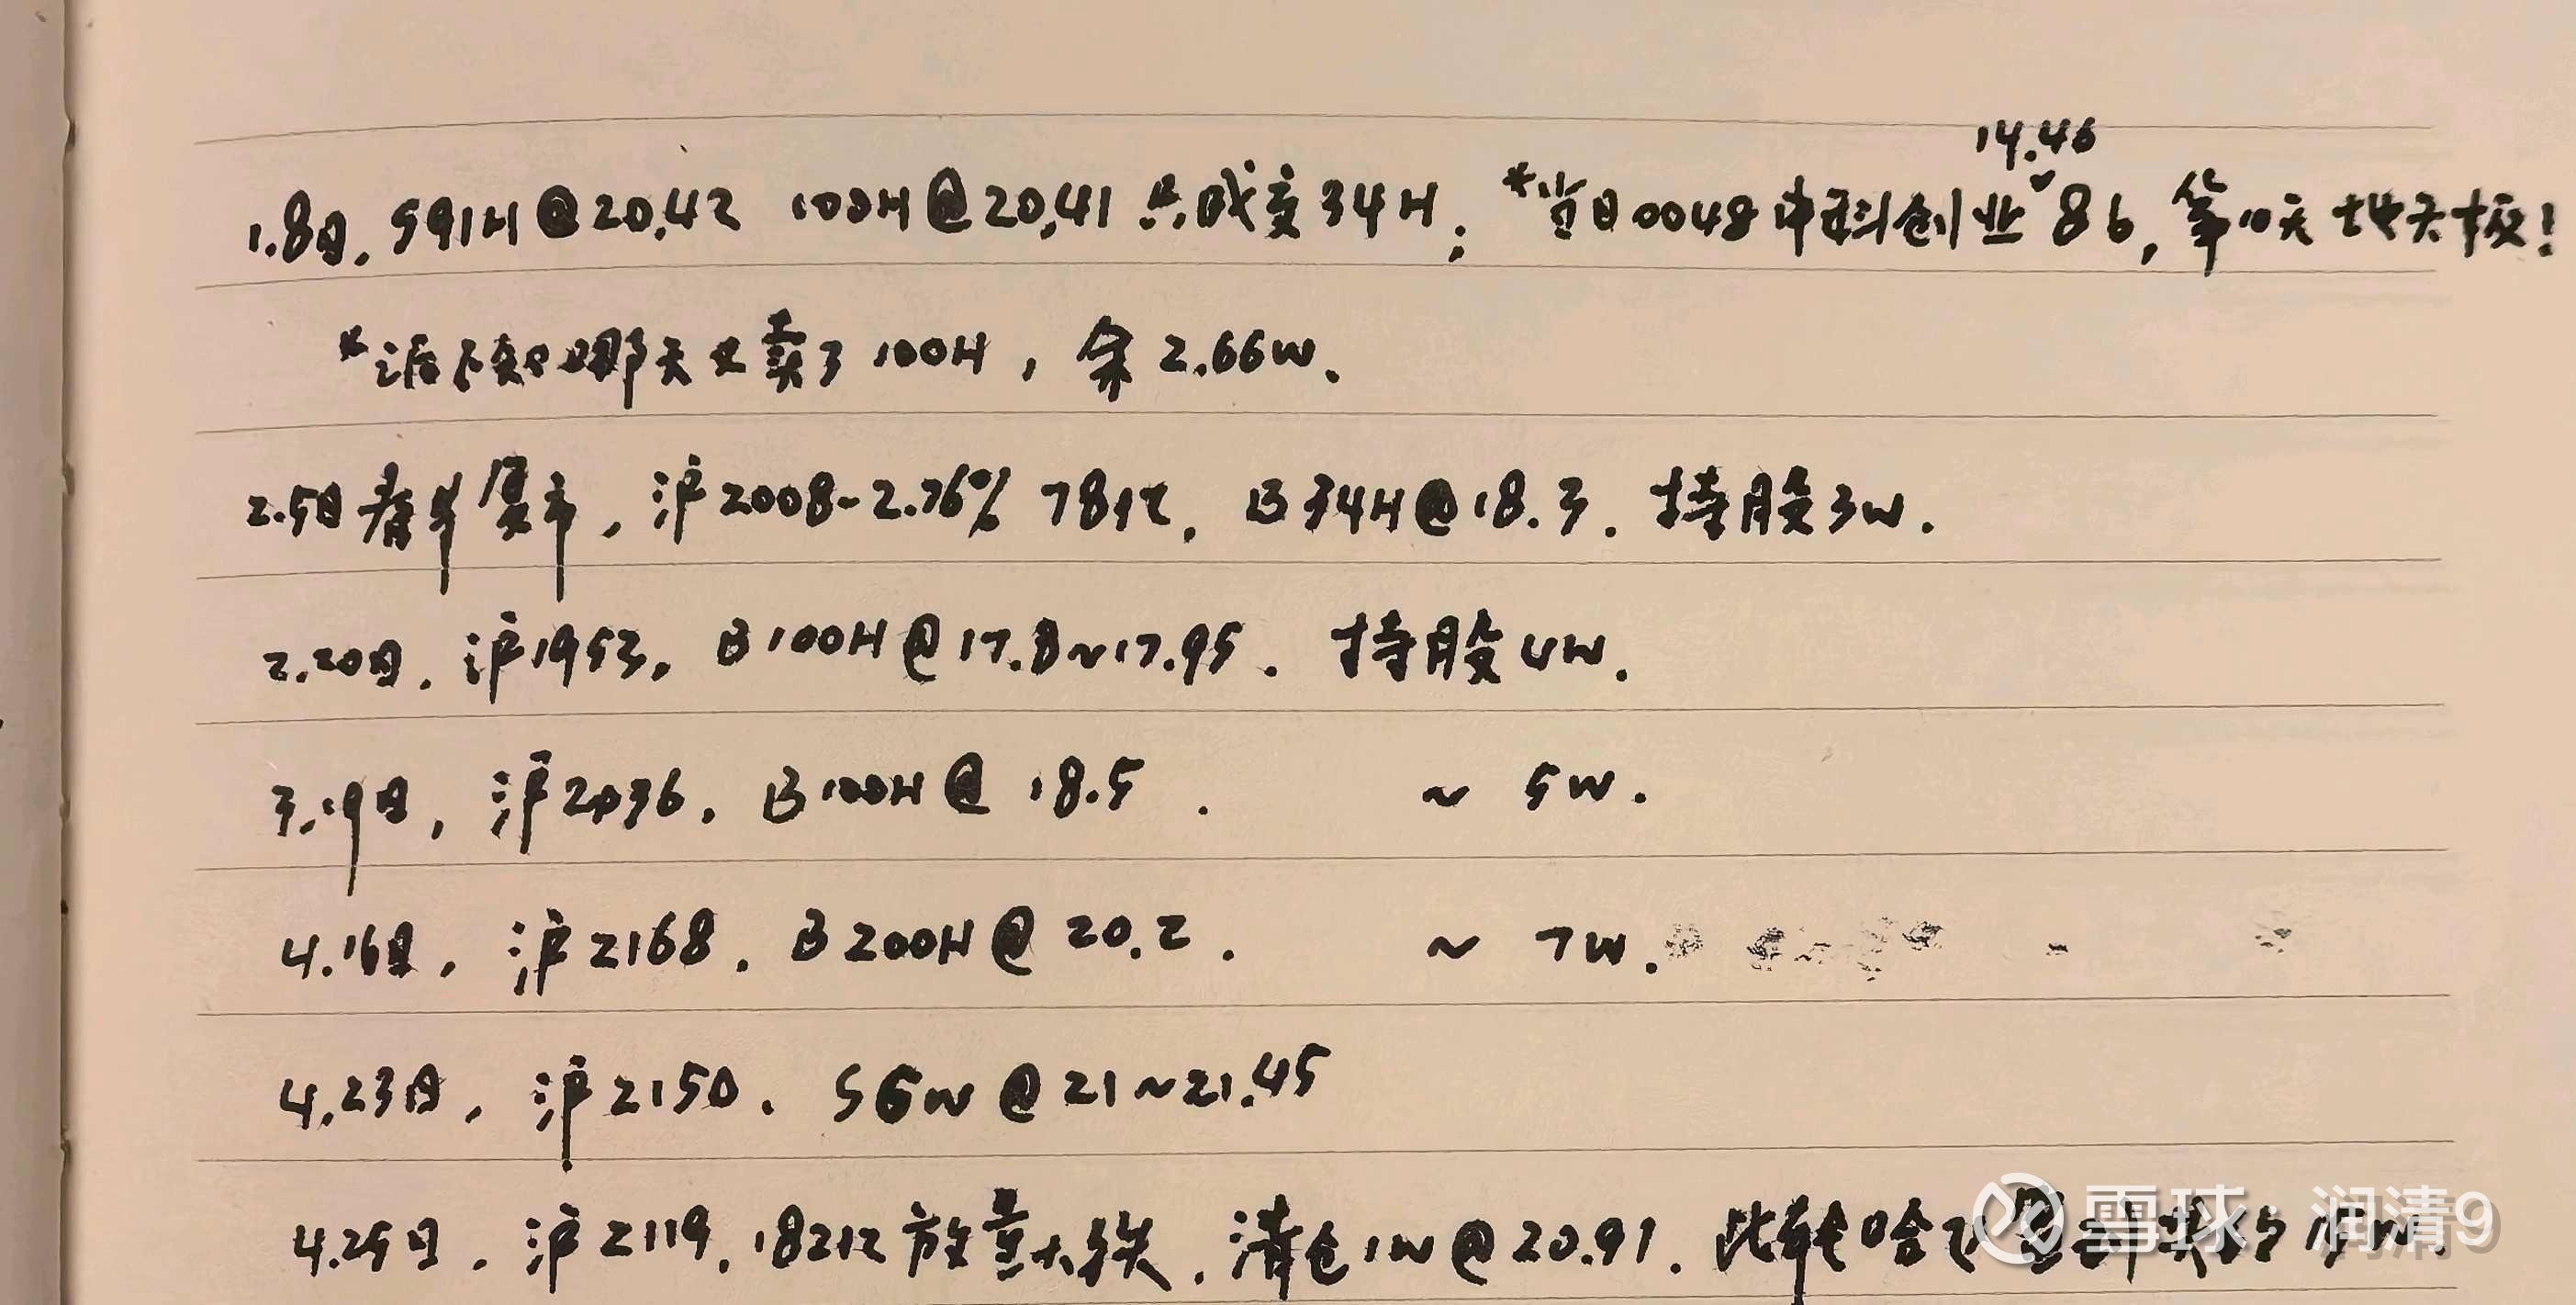 14.46
1.8日. S91H@20.42 100H@20.41 只成交34H; *当日0048中科创业86, 第10天地天板!
*后不知哪天又卖了100H, 余2.66w.
2.5日春节复市, 沪2008-2.76% 78亿, B34H@18.3. 持股3w.
2.20日. 沪1953, B100H@17.8~17.95. 持股4w.
3.19日, 沪2036. B100H@18.5. ~ 5w.
4.16日. 沪2168. B200H@20.2. ~ 7w.
4.23日. 沪2150. S6w@21~21.45
4.25日. 沪2119, 182亿放量大跌. 清仓1w@20.91. 此轮哈飞
雪球：润清9